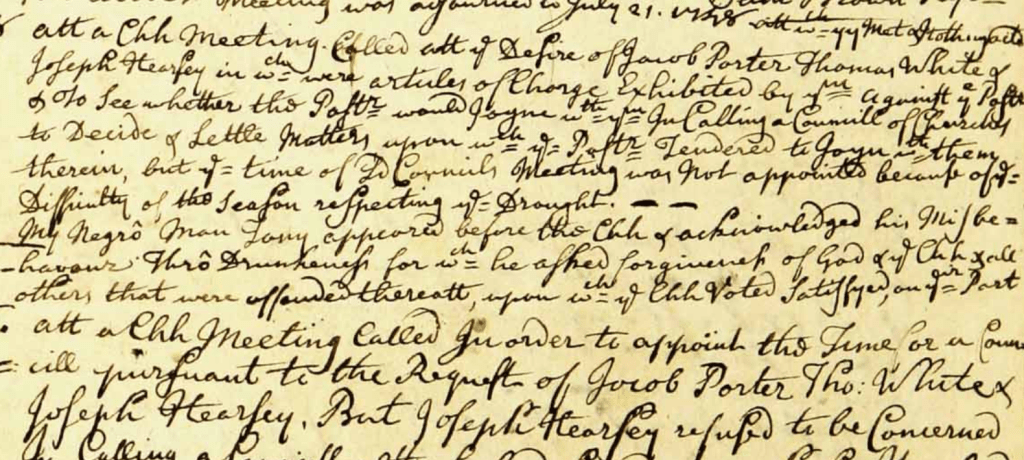 Meeting was adjourned to July 21. 1748 Met & Nothing acted
att a Chh Meeting. Called att ye Desire of Jacob Porter Thomas White &
Joseph Hearsey in wch were articles of Charge Exhibited by ym against ye Pastr
& to See whether the Pastr would Joyne wth ym In Calling a Councill of Churches
to Decide & Settle Matters upon wch ye= Pastr Tendered to Joyn wth them
therein, but ye= time of Sd Councils Meeting was Not appointed because of ye=
Difficulty of the Season respecting ye= Drought. — —
My Negrô Man Tony appeared before the Chh & acknowledged his Misbe=
=haveour Thrô Drunkeness for wch he asked forgiveness of God & ye Chh & all
others that were offended thereatt, upon wch ye Chh Voted Satisfyed, on yr= Part
att a Chh Meeting Called In order to appoint the Time for a Coun
=cill pursuant to the Request of Jacob Porter Tho: White &
Joseph Hearsey, But Joseph Hearsey refused to be Concerned
In Calling a Councill